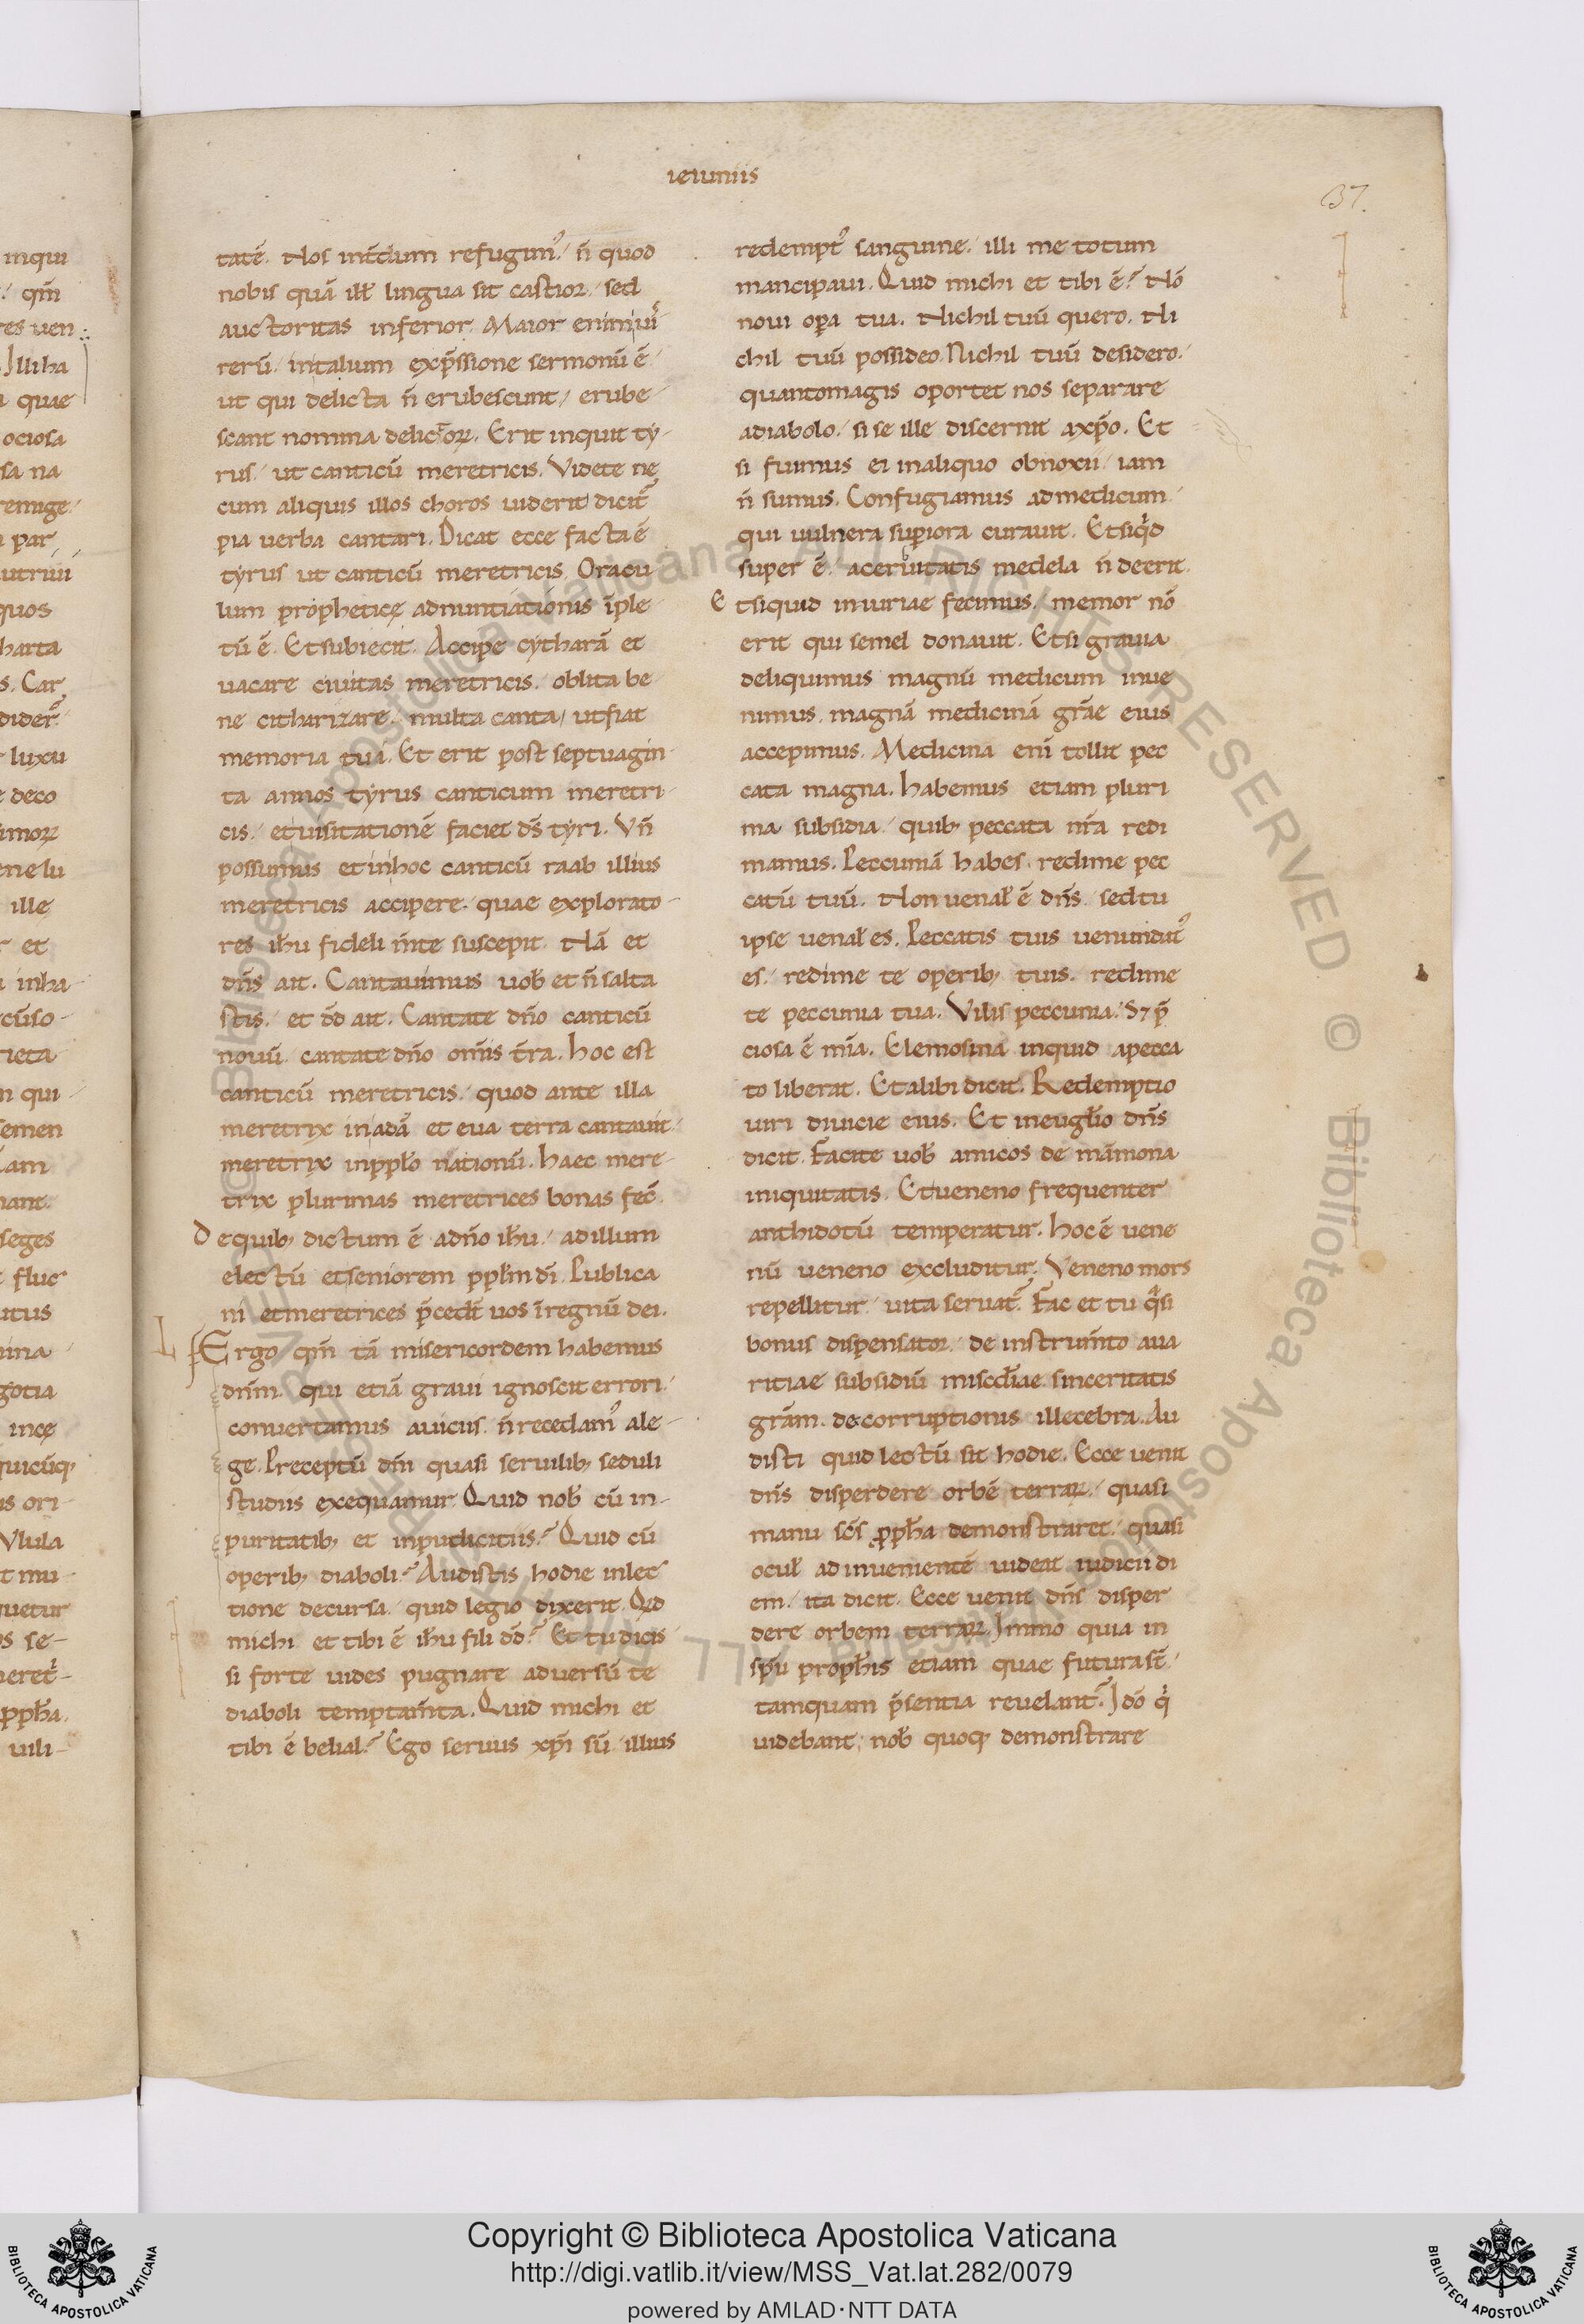 ieiuniis
37.
tatē. Nos int̄dum refugim᷒. n̄ quod
nobis quā ill̄ lingua sit castior. sed
auctoritas inferior. Maior enim ui᷒
rerū. intalium exp̄ssione sermonū ē
ut qui delicta n̄ erubescunt, erube-
scant nomina delictoꝝ. Erit inquit ty-
rus. ut canticū meretricis. Videte ne
cum aliquis illos choros uiderit dicit᷒
pia uerba cantari. Dicat ecce facta ē
tyrus ut canticū meretricis. Oracu
lum propheticę adnuntiationis īple-
tū ē. Et subiecit. Accipe cytharā et
uacare ciuitas meretricis. oblita be-
ne citharizare. multa canta, utfiat
memoria tua. Et erit post septuagin-
ta annos tyrus canticum meretri-
cis. et uisitationē faciet d̄s tyri. Vn̄
possumus et inhoc canticū raab illius
meretricis accipere. quae explorato-
res ih̄u fideli m̄te suscepit. Nā et
dn̄s ait. Cantauimus uob̄ et n̄ salta
stis. et d̄d ait. Cantate dn̄o canticū
nouū. cantate dn̄o om̄is t̄ra. hoc est
canticū meretricis. quod ante illa
meretrix in adā et eua terra cantauit.
meretrix inppl̄o nationū. haec mere-
trix plurimas meretrices bonas fec̄.
De quib; dictum ē adn̄o ih̄u. ad illum
electū et seniorem ppl̄m dī. Publica
ni et meretrices p̄cedt̄ uos ī regnū dei.
Ergo qm̄ tā misericordem habemus
dn̄m. qui etiā graui ignoscit errori.
conuertamus auicus. n̄ recedam᷒ ale-
ge. Preceptū dn̄i quasi seruilib; seduli
studiis exequamur. Quid nob̄ cū in-
puritatib; et inpudicitiis? Quid cū
operib; diaboli? Audistis hodie inlec
tione decursa. quid legio dixerit. Qd
michi et tibi ē ih̄u fili d̄d? Et tu dicis
si forte uides pugnare aduersū te
diaboli temptam̄ta. Quid michi et
tibi ē belial? Ego seruus xp̄i sū. illius
redempt᷒ sanguine. illi me totum
mancipaui. Quid michi et tibi ē? Nō
noui oꝑa tua. Nichil tuū quero. Ni
chil tuū possideo. Nichil tuū desidero.
quantomagis oportet nos separare
adiabolo. si se ille discernit axp̄o. Et
si fuimus ei inaliquo obnoxii. iam
n̄ sumus. Confugiamus admedicum.
qui uulnera suꝑiora curauit. Etsiqͥd
super ē. aceruitatis medela n̄ deerit.
Et siquid iniuriae fecimus. memor nō
erit qui semel donauit. Etsi grauia
deliquimus magnū medicum inue
nimus. magnā medicinā grāe eius
accepimus. Medicina enī tollit pec
cata magna. habemus etiam pluri
ma subsidia. quib; peccata nr̄a redi
mamus. Peccuniā habes. redime pec
catū tuū. Non uenal̄ ē dn̄s. sed tu
ipse uenal̄ es. Peccatis tuis uenundat᷒
es. redime te operib; tuis. redime
te peccunia tua. Vilis peccunia. S7 p̄
ciosa ē mīa. Elemosina inquid apecca
to liberat. Et alibi dicit. Redemptio
uiri diuicie eius. Et ineugl̄io dn̄s
dicit. Facite uob̄ amicos de māmona
iniquitatis. Et ueneno frequenter
anthidotū temperatur. hoc ē uene
nū ueneno excluditur. Veneno mors
repellitur. uita seruat᷒. Fac et tu qͣsi
bonus dispensator. de instrum̄to aua
ritiae subsidiū miscdīae. sinceritatis
grām. de corruptionis illecebra. Au
disti quid lectū sit hodie. Ecce uenit
dn̄s disperdere orbē terraꝝ. quasi
manu sc̄s ꝓph̄a demonstraret. quasi
ocul̄ ad inuenientē uideat iudicii di
em. ita dicit. Ecce uenit dn̄s disper
dere orbem terraꝝ. Immo quia in
sp̄u proph̄is etiam quae futura st̄.
tamquam p̄sentia reuelant᷒. Idō qͥ
uidebant; nob̄ quoq; demonstrare
Copyright © Biblioteca Apostolica Vaticana
http://digi.vatlib.it/view/MSS_Vat.lat.282/0079
powered by AMLAD·NTT DATA